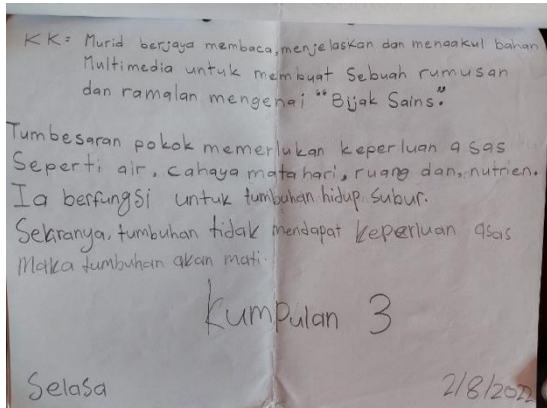 KK: Murid berjaya membaca, menjelaskan dan menaakul bahan
Multimedia untuk membuat sebuah rumusan
dan ramalan mengenai "Bijak Sains."
Tumbesaran pokok memerlukan keperluan asas
Seperti air, cahaya matahari, ruang dan, nutrien.
Ia berfungsi untuk tumbuhan hidup subur.
Sekranya, tumbuhan tidak mendapat keperluan asas
Maka tumbuhan akan mati.
Kumpulan 3
Selasa
2/8/2022